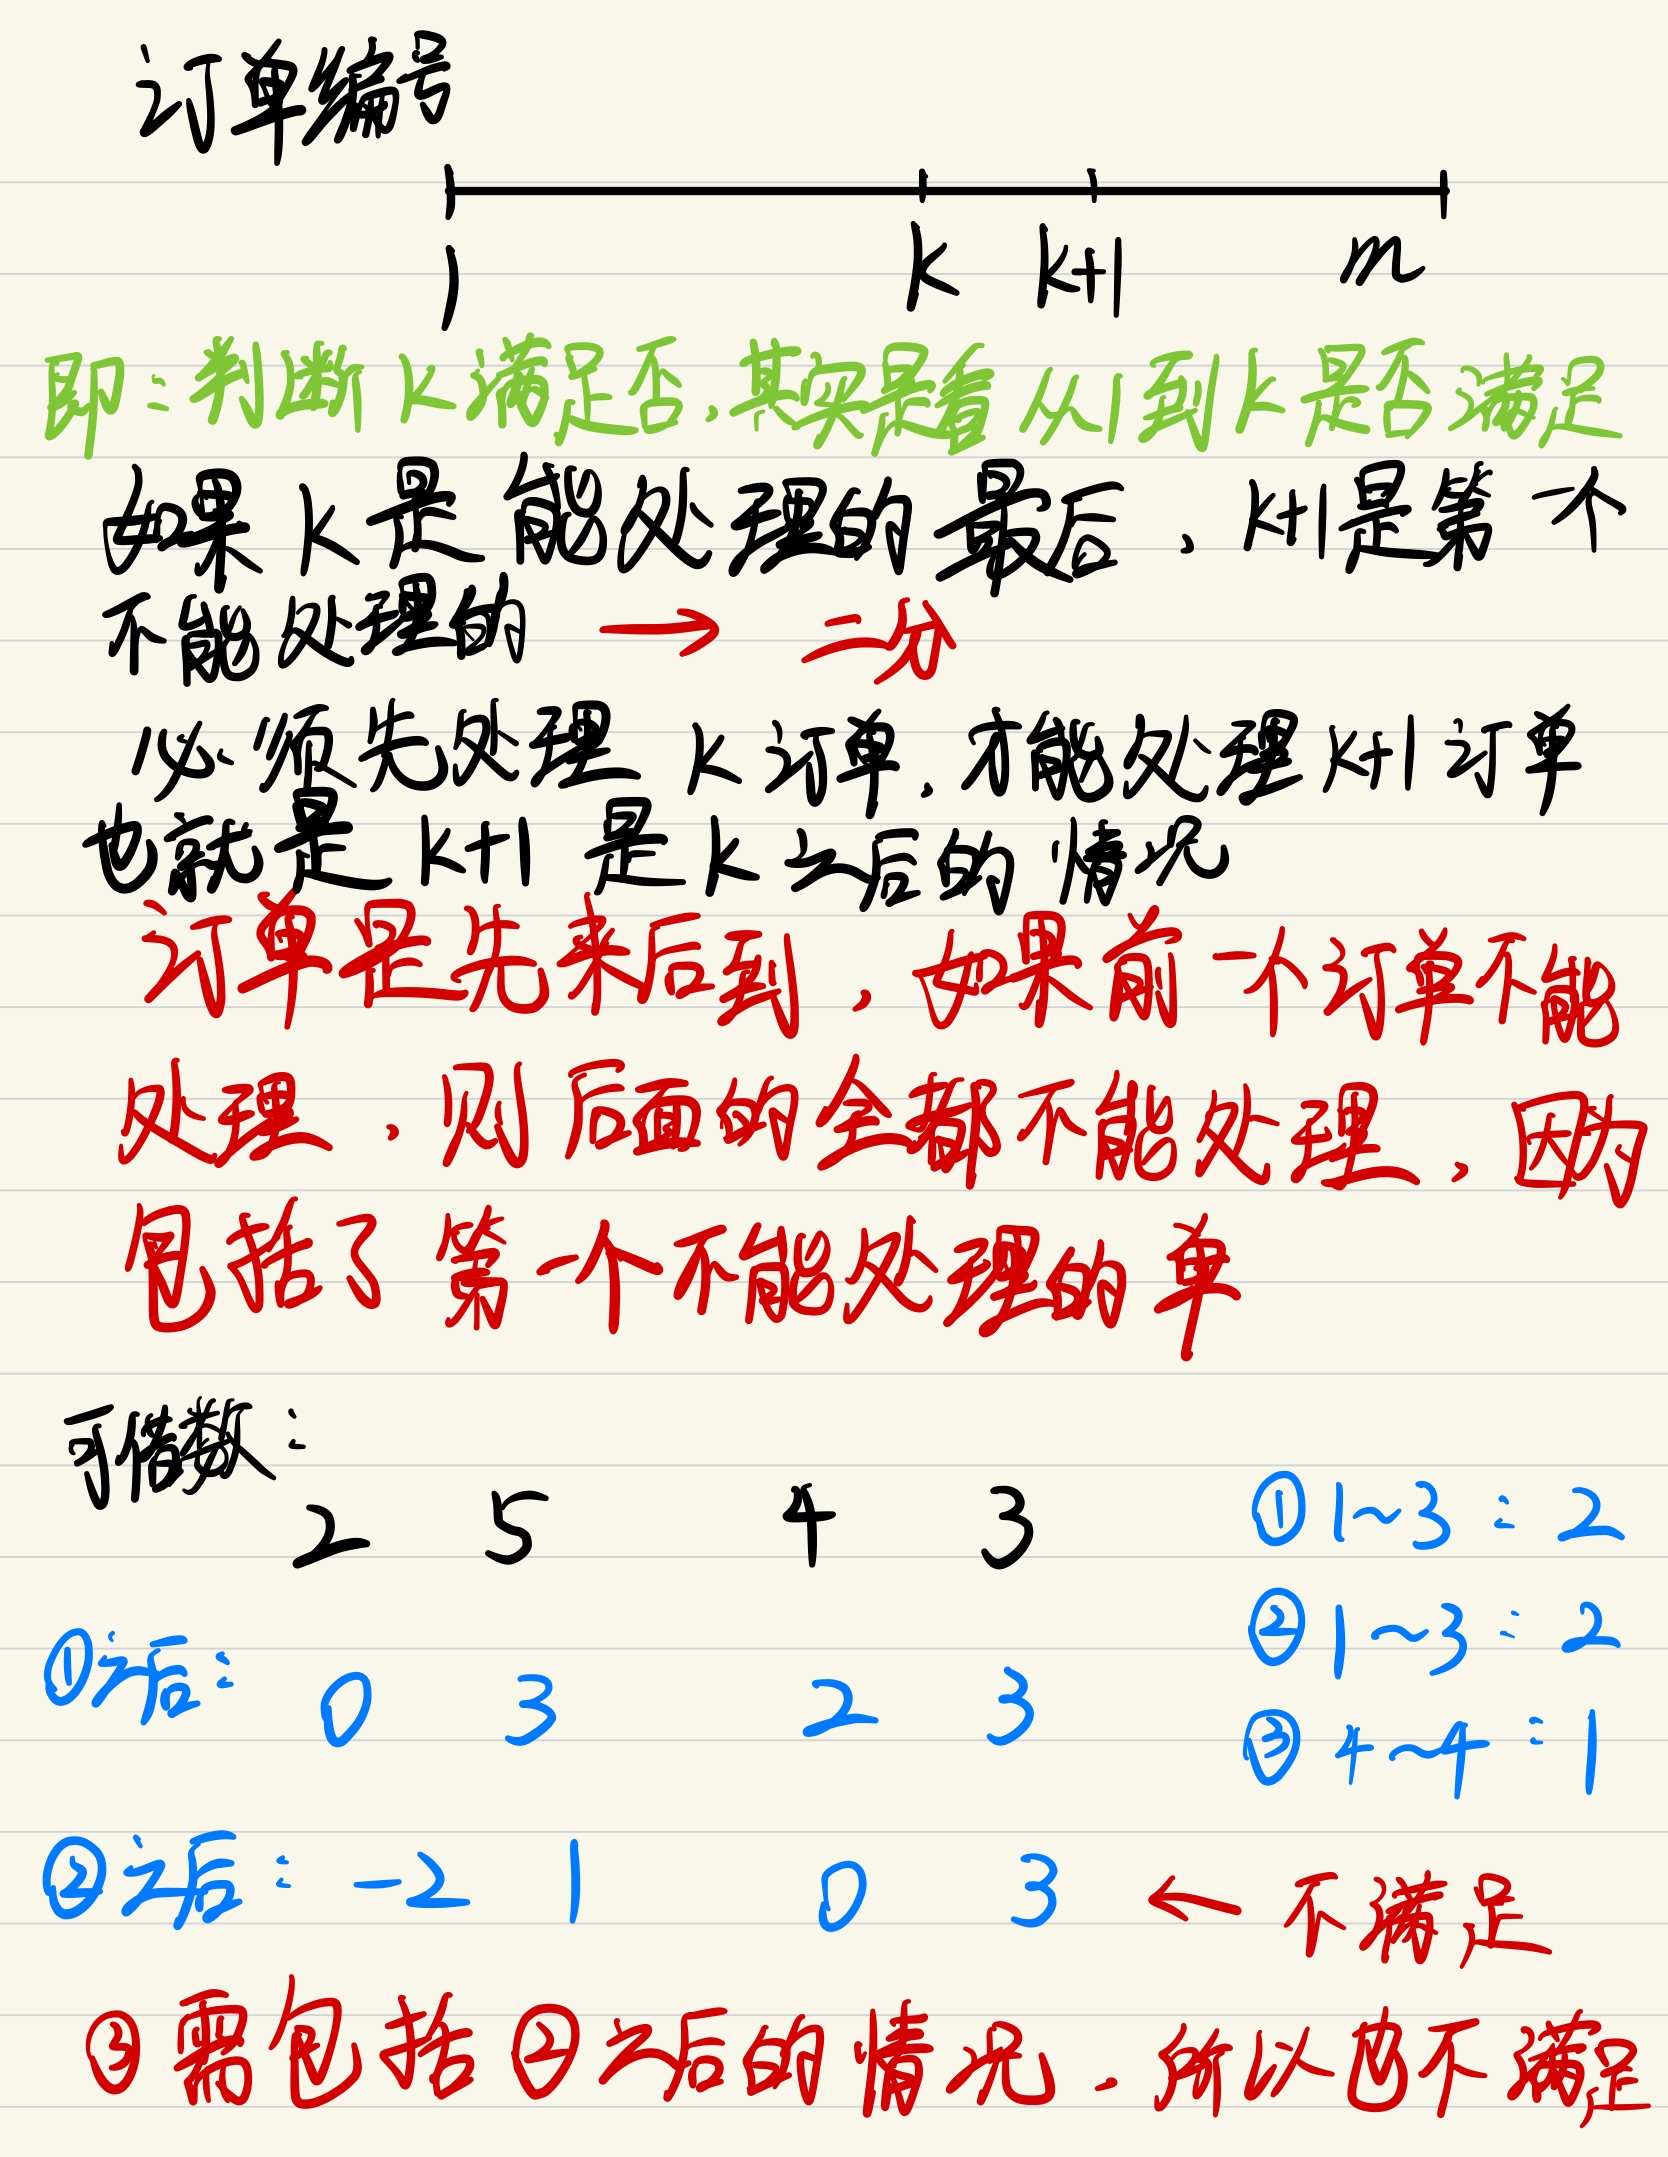 订单编号
1 k k+1 m
即：判断k满足否，其实是看从1到k是否满足
如果k是能处理的最后，k+1是第一个
不能处理的 → 二分
必须先处理k订单，才能处理k+1订单
也就是k+1是k之后的情况
订单是先来后到，如果前一个订单不能
处理，则后面的全都不能处理，因为
包括了第一个不能处理的单
可借数：
2 5 4 3
①1~3：2
②1~3：2
③4~4：1
①之后：0 3 2 3
②之后：-2 1 0 3 ← 不满足
③需包括②之后的情况，所以也不满足